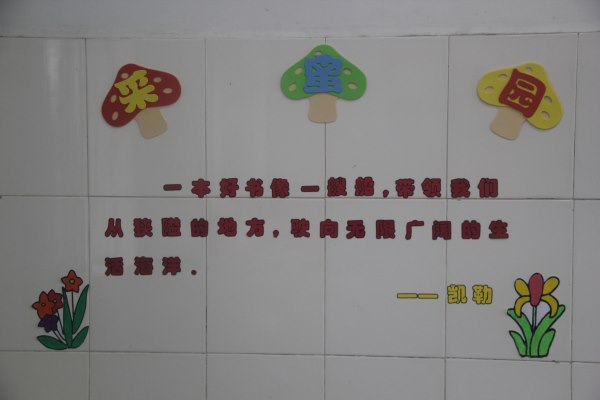 采蜜园
一本好书像一艘船,带领我们
从狭隘的地方,驶向无限广阔的生
活海洋.
——凯勒